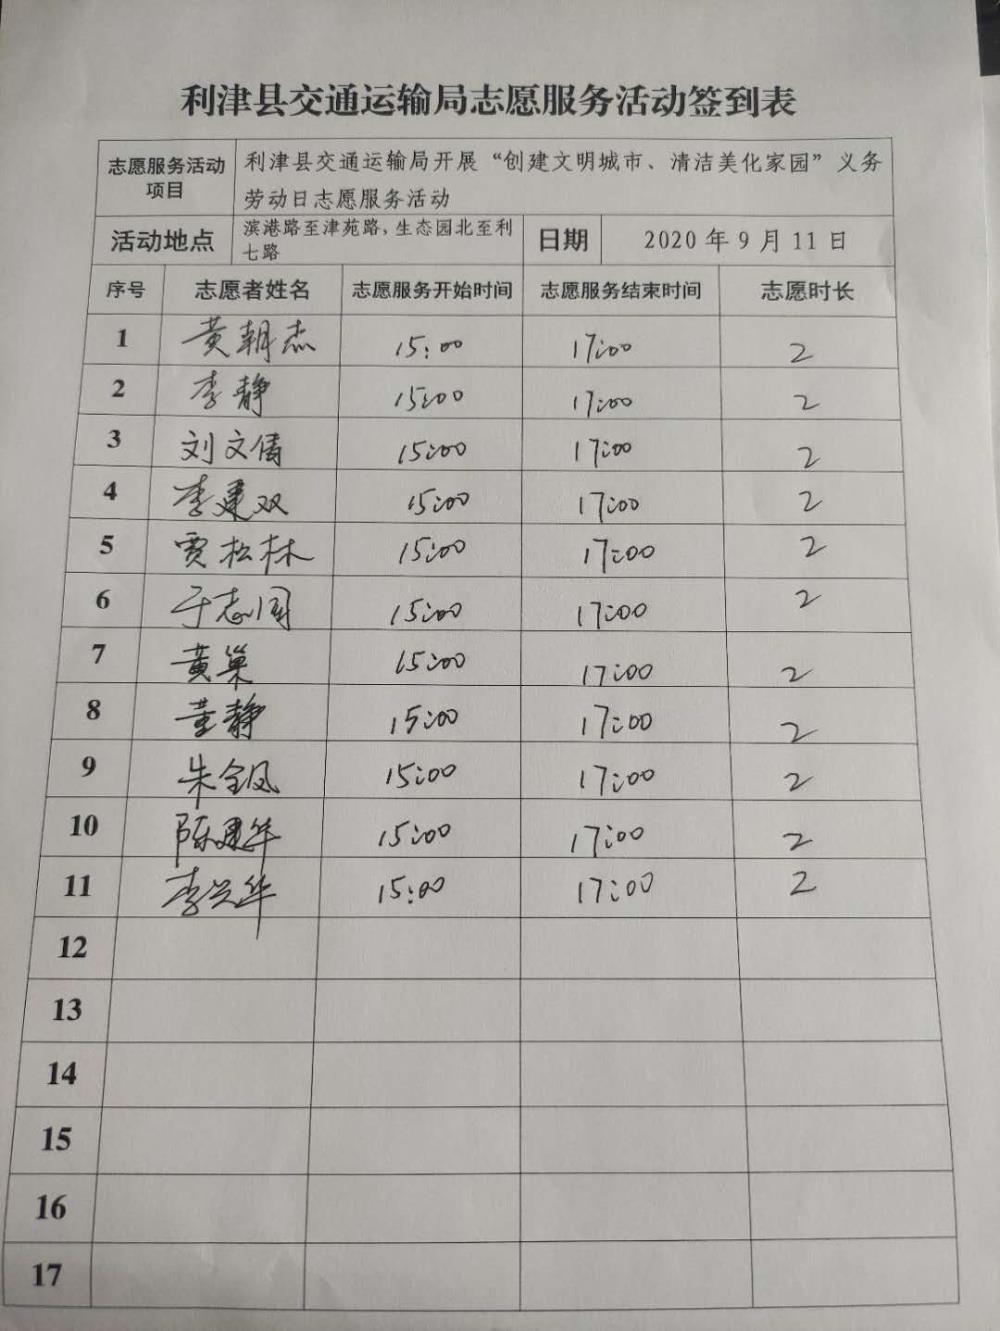 利津县交通运输局志愿服务活动签到表
志愿服务活动项目 利津县交通运输局开展“创建文明城市、清洁美化家园”义务
劳动日志愿服务活动
活动地点 滨港路至津苑路，生态园北至利七路 日期 2020年9月11日
序号 志愿者姓名 志愿服务开始时间 志愿服务结束时间 志愿时长
1 黄朝杰 15:00 17:00 2
2 李静 15:00 17:00 2
3 刘文倩 15:00 17:00 2
4 李建双 15:00 17:00 2
5 贾松林 15:00 17:00 2
6 于志国 15:00 17:00 2
7 黄巢 15:00 17:00 2
8 董静 15:00 17:00 2
9 朱全凤 15:00 17:00 2
10 陈建华 15:00 17:00 2
11 李兴华 15:00 17:00 2
12
13
14
15
16
17